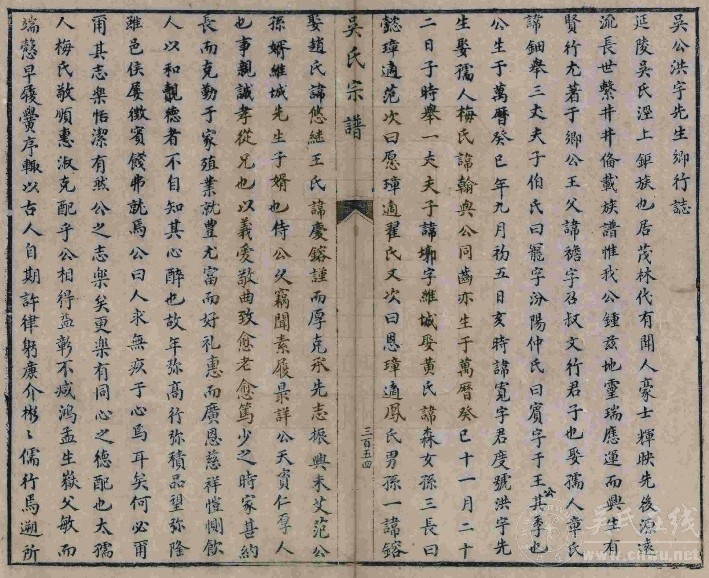 吳公洪宇先生鄉行誌
延陵吳氏涇上鉅族也居茂林代有聞人豪士輝映先後源遠
流長世繫井井備載族譜惟我公鍾茲地靈瑞應運而興生有
賢行尤著于鄉公王父諱穡字召叔文行君子也娶孺人章氏
諱鈿舉三丈夫子伯氏曰寵字汾陽仲氏曰賓字于王其季也
公生于萬曆癸巳年九月初五日亥時諱寬字君度號洪宇先
生娶孺人梅氏諱翰與公同齒亦生于萬曆癸巳十一月二十
二日子時舉一丈夫子諱墉字維城娶黃氏諱森女孫三長曰
懿璋適范次曰愿璋適翟氏又次曰恩璋適鳳氏男孫一諱鎔
吳氏宗譜
三百五四
娶趙氏諱悠繼王氏諱慶鎔謹而厚克承先志振興未艾范公
孫婿維城先生子婿也侍公久竊聞素履最詳公天資仁厚人
也事親誠孝從兄也以義愛敬曲致愈老愈篤少之時家甚約
長而克勤于家殖業就豐尤富而好礼惠而廣恩慈祥愷惻飲
人以和親德者不自知其心醉也故年弥高行弥積品望弥隆
雖邑侯屢徵賓餞弗就焉公曰人求無疚于心焉耳矣何必爾
爾其志樂恬潔有然公之志樂矣更樂有同心之德配也太孺
人梅氏敬順惠淑克配乎公相得益彰不减鴻孟生嶽父敏而
端慤早履黌序輒以古人自期許律躬廉介彬々儒行焉遡所
公
吳氏在线